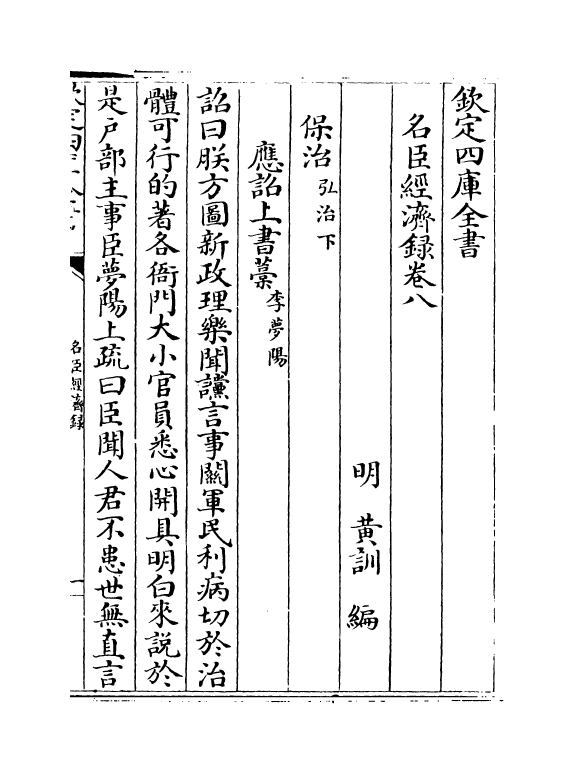 欽定四庫全書
名臣經濟録卷八
明 黃訓 編
保治 弘治下
應詔上書藁 李夢陽
詔曰朕方圖新政理樂聞讜言事關軍民利病切於治
體可行的著各衙門大小官員悉心開具明白來說於
是戶部主事臣夢陽上疏曰臣聞人君不患世無直言
名臣經濟録
一